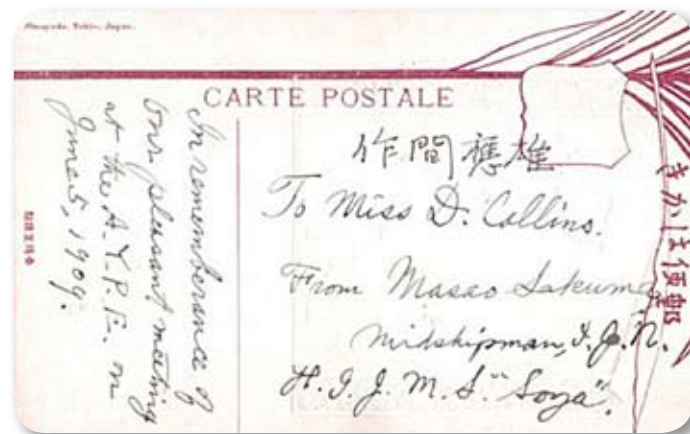 Tokio, Japan.
CARTE POSTALE
In rememberance of
our pleasant meeting
at the A. Y. P. E. on
June 5, 1909.
作間應雄
To Miss D. Collins.
From Masao Sakuma
Midshipman, I. J. N.
H. I. J. M. S. "Soya".
きかは便郵